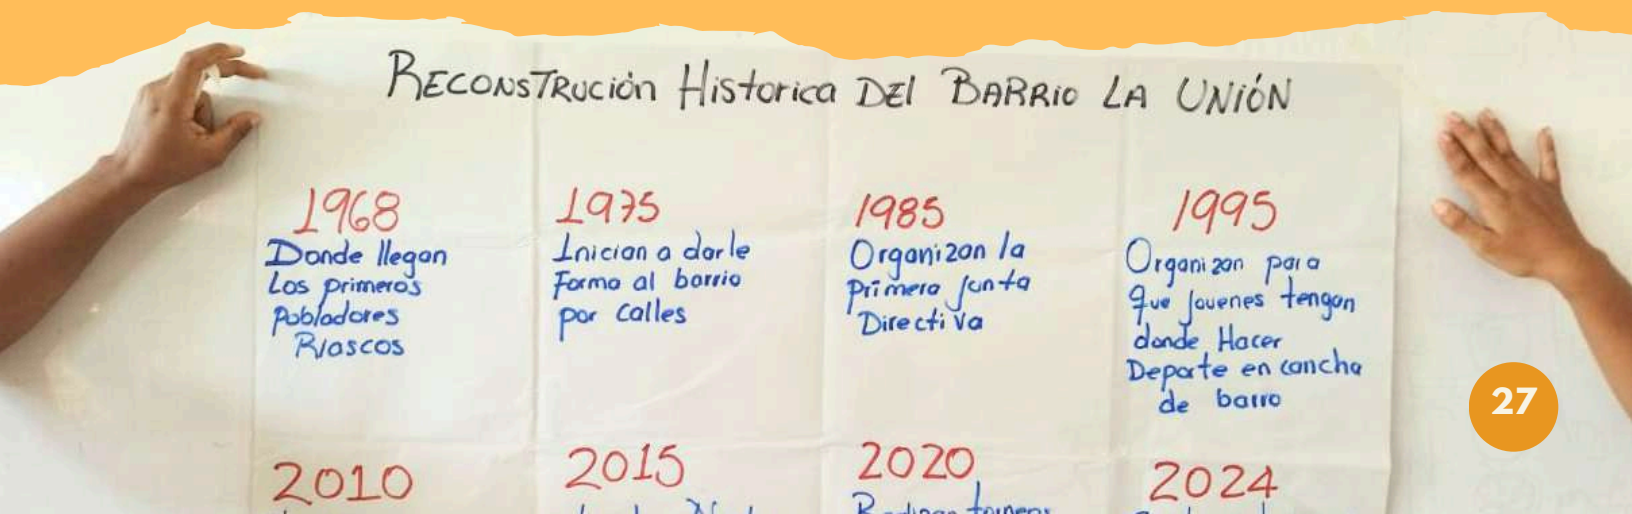 RECONSTRUción Historica DEl BARRio LA UNIÓN
1968
Donde llegan
Los primeros
Pobladores
Riascos
1975
Inician a darle
Forma al barrio
por calles
1985
Organizan la
Primera Junta
Directiva
1995
Organizan para
que Jovenes tengan
donde Hacer
Deporte en cancha
de barro
27
2010
2015
2020
2024